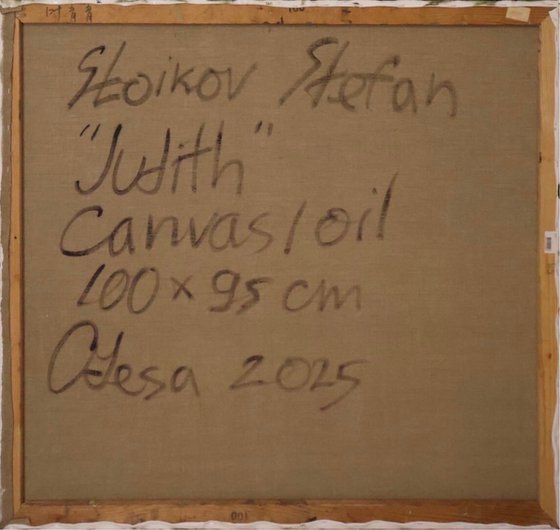 Stoikov Stefan
"Judith"
Canvas / oil
100 x 95 cm
Odesa 2025
100